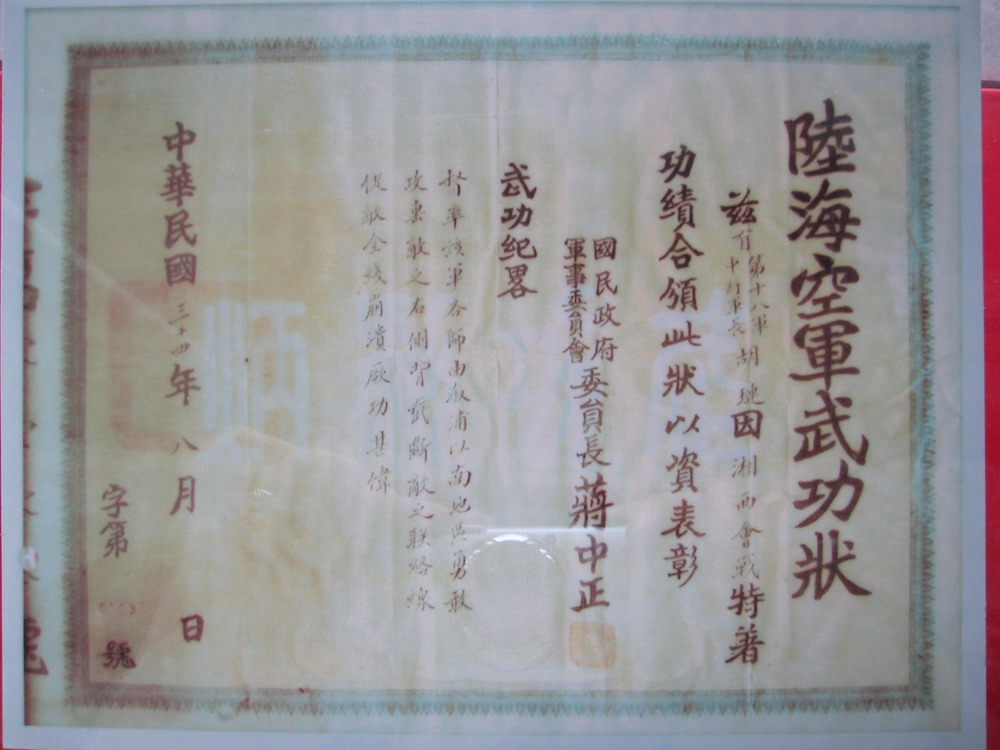 陸海空軍武功狀
茲有第十八軍中將軍長胡璉因湘西會戰特著
功績合頒此狀以資表彰
國民政府
軍事委員會
委員長蔣中正
武功紀畧
督率該軍各師由溆浦以南地區勇敢
攻擊敵之右側背截斷敵之联絡線
促敵全线崩潰厥功甚偉
中華民國三十四年八月 日
字第 號